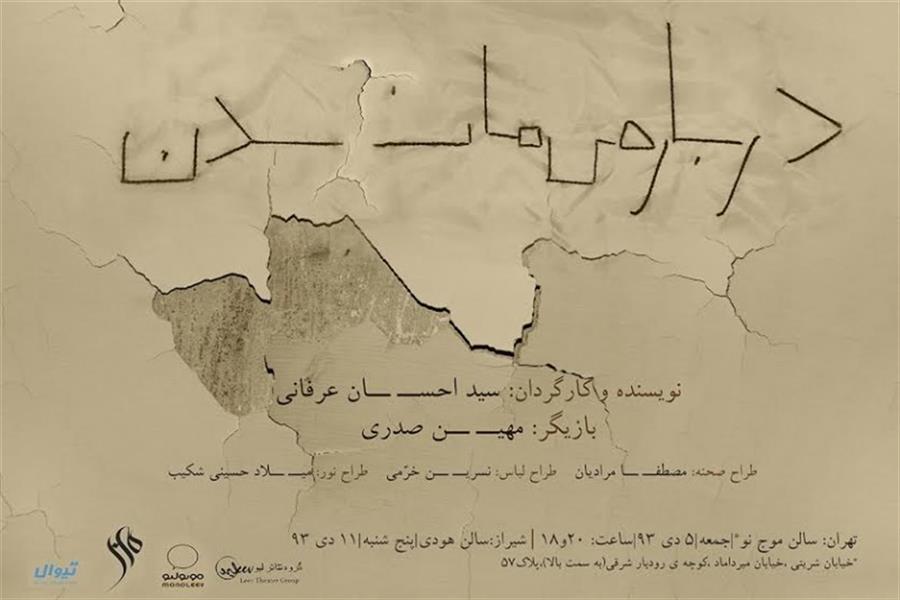 درباره‌ی ماندن
نویسنده و کارگردان: سید احسان عرفانی
بازیگر: مهین صدری
طراح صحنه: مصطفا مرادیان طراح لباس: نسرین خرّمی طراح نور: میلاد حسینی شکیب
تهران: سالن موج نو*|جمعه|۵ دی ۹۳|ساعت: ۲۰و۱۸ | شیراز:سالن هودی|پنج شنبه|۱۱ دی ۹۳
*خیابان شریتی ،خیابان میرداماد ،کوچه ی رودبار شرقی(به سمت بالا)،پلاک۵۷
تیوال
مونولیو
MONOLEEV
گروه تئاتر لیو
Leev Theater Group